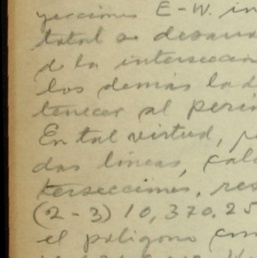 yecciones E-W. in
total se desarro
de la intersección
los demás lad
tenecer al perím
En tal virtud, p
das líneas, cal
tersecciones, res
(2-3) 10,370.25
el polígono com